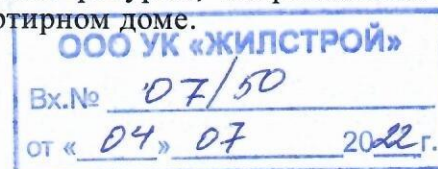 ртирном доме.
ООО УК «ЖИЛСТРОЙ»
Вх.№ 07/50
от « 04 » 07 2022 г.